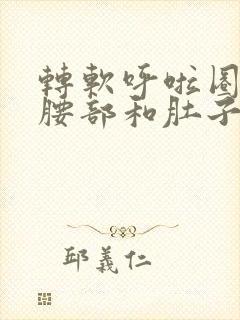 轉軟呼啦圈
腰部和肚子
邱義仁